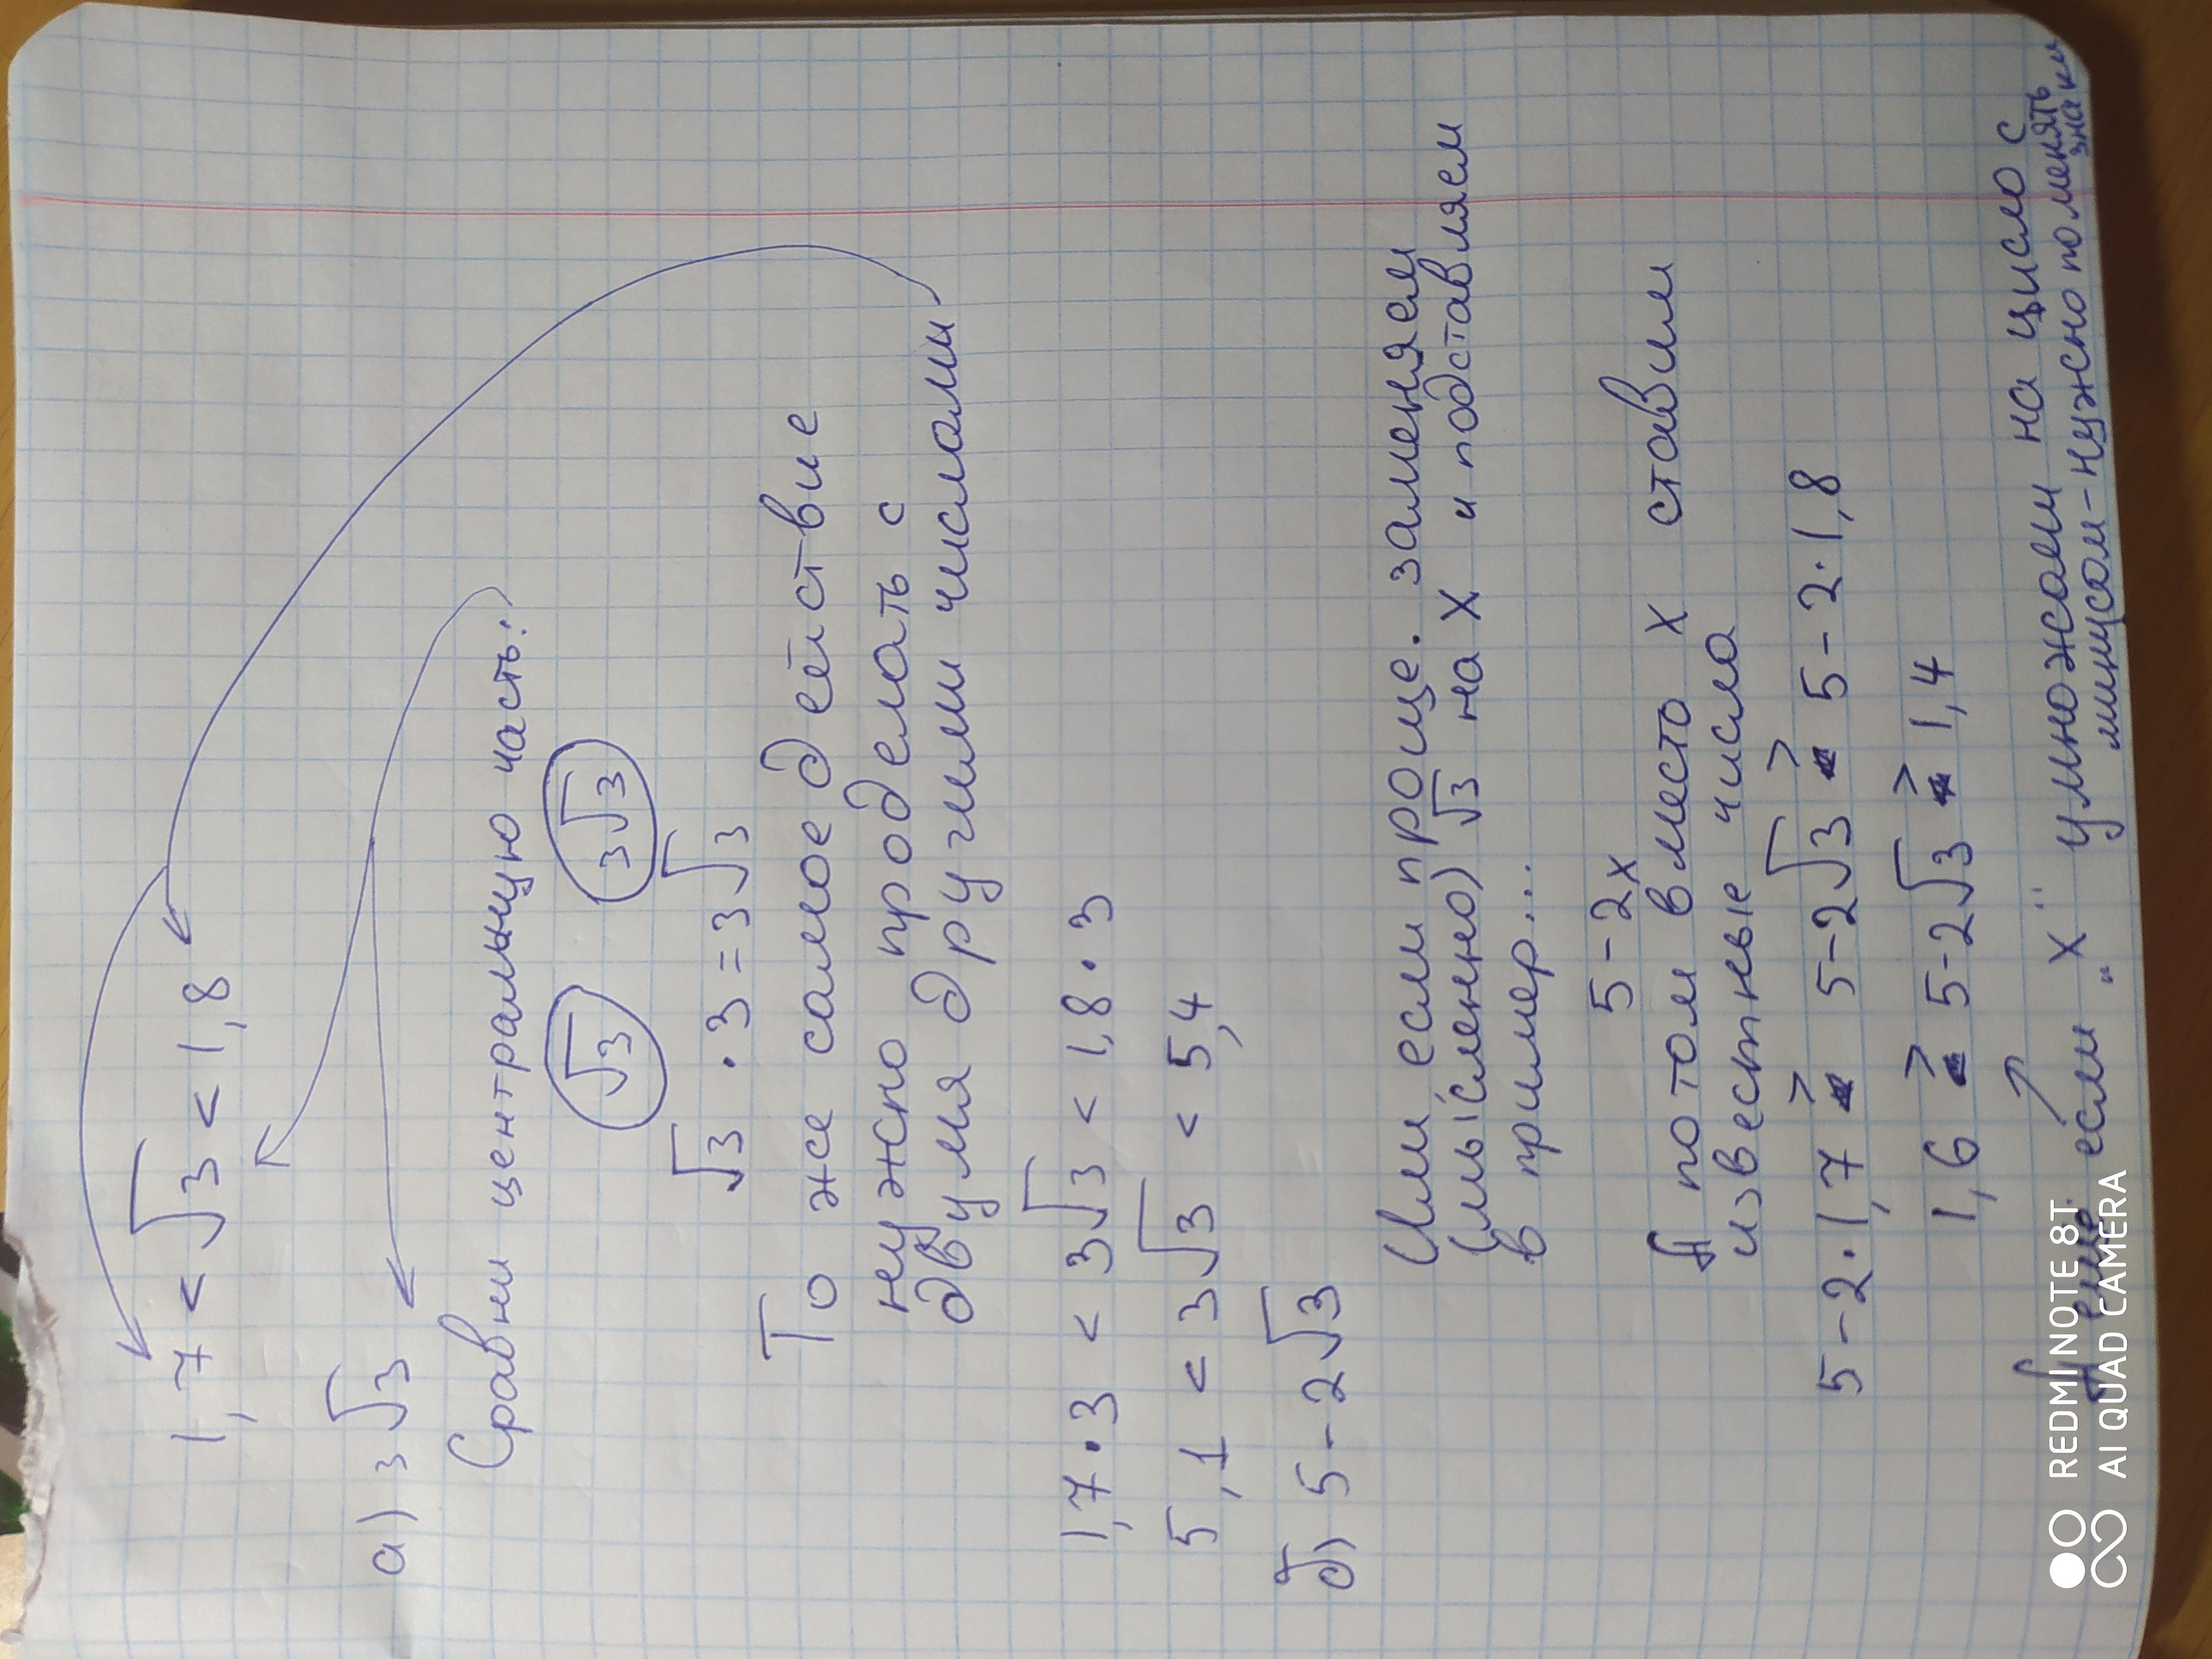 1,7 < √3 < 1,8
а) 3√3
Сравни центральную часть:
√3 3√3
√3 · 3 = 3√3
То же самое действие
нужно проделать с
двумя другими числами
1,7 · 3 < 3√3 < 1,8 · 3
5,1 < 3√3 < 5,4
б) 5 - 2√3
Или если проще. заменяем
(мысленно) √3 на х и подставляем
в пример...
5 - 2х
А потом вместо х ставим
известные числа
5 - 2 · 1,7 > 5 - 2√3 > 5 - 2 · 1,8
1,6 > 5 - 2√3 > 1,4
А еще. если „х" умножаем на число с
минусом - нужно поменять
знаки
REDMI NOTE 8T
AI QUAD CAMERA